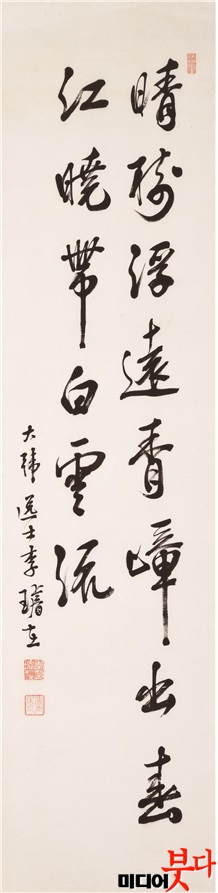 晴樹浮遠青嶂出春
江曉帶白雲流
大韓 士李
미디어 붓다